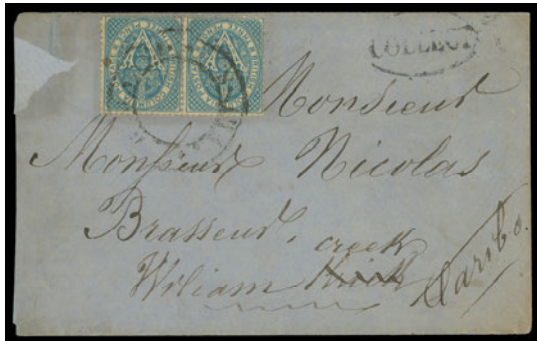 COLLECT
Monsieur
Monsieur Nicolas
Brasseur, creek
Wiliam
Caribo.